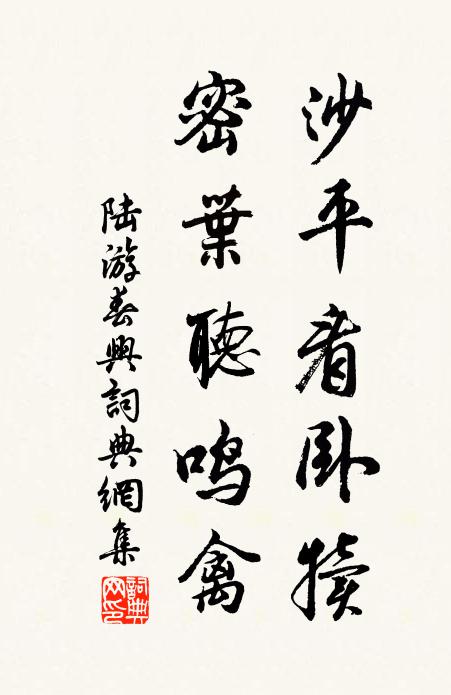 沙平看卧犢
密葉聽鳴禽
陸游春興詞典網集
詞典網印